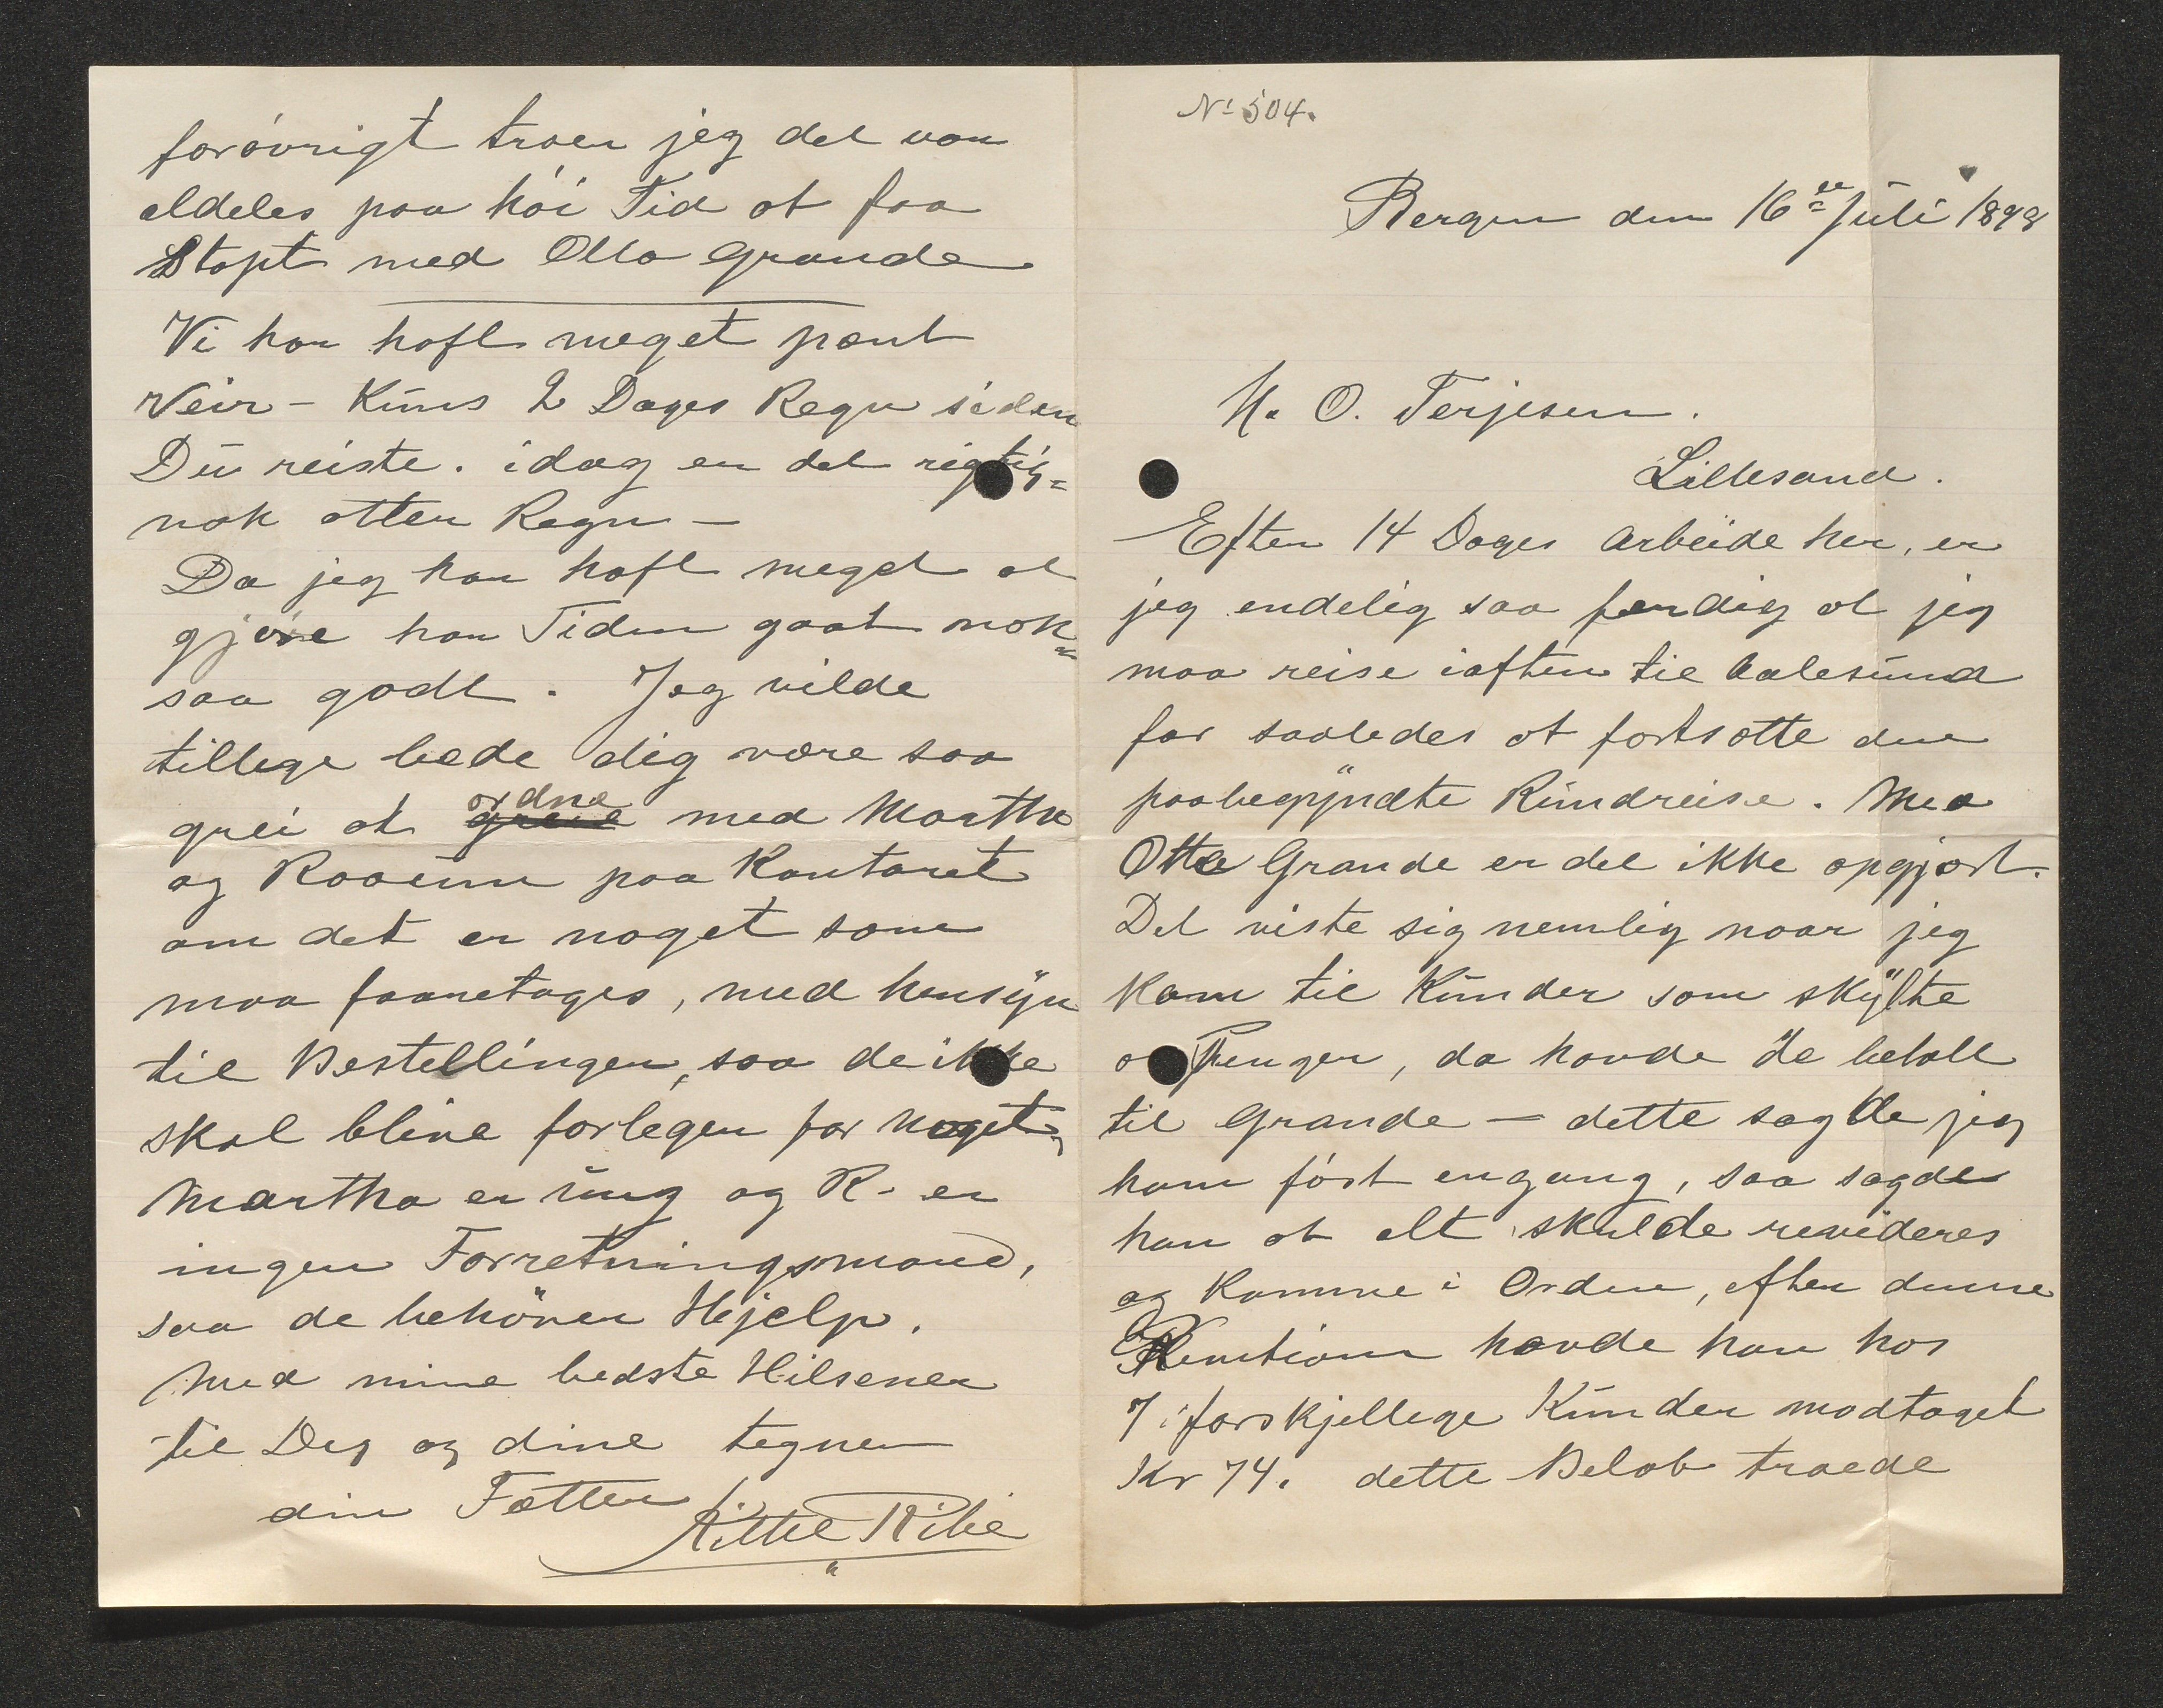 No 504.
Bergen den 16de Juli 1898
H. O. Terjesen.
Lillesand.
Efter 14 Dages Arbeide her, er
jeg endelig saa færdig at jeg
maa reise iaften til Aalesund
for saaledes at fortsætte den
paabegyndte Rundreise. Med
Otto Grande er det ikke opgjort.
Det viste sig nemlig naar jeg
kom til Kunder som skylte
os Penger, da havde de betalt
til Grande — dette sagde jeg
ham først engang, saa sagde
han at alt skulde revideres
og komme i Orden, efter denne
havde han hos
7 forskjellige Kunder modtaget
Kr 74. dette Beløb troede
forøvrigt troer jeg det var
aldeles paa høi Tid at faa
Stopt med Otto Grande
Vi har haft meget pent
Veir – Kuns 2 Dages Regn siden
Du reiste. idag er det rigtig=
nok atter Regn –
Da jeg har haft meget at
gjøre har Tiden gaat nok=
saa godt. Jeg vilde
tillege bede dig være saa
grei at ordne med Martha
og paa Kontoret
om det er noget som
maa foretages, med hensyn
til Bestellinger, saa de ikke
skal blive forlegen for noget,
Martha er ung og R. er
ingen Forretningsmand,
saa de behøver Hjelp.
Med mine bedste Hilsener
til Deg og dine tegner
din Fætter
Kittil Ribe